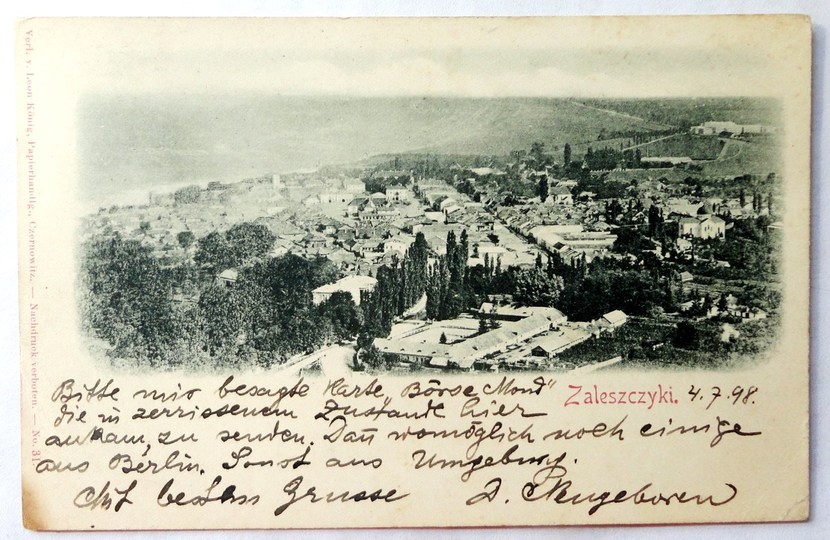 Verl. v. Leon König, Papierhandlg., Czernowitz. — Nachdruck verboten. — No. 31
Zaleszczyki. 4.7.98.
Bitte mir besagte Karte „Börse Mond"
die in zerrissenem Zustande hier
ankam, zu senden. Dan womöglich noch einige
aus Berlin. Sonst aus Umgebung.
Mit besten Grusse D. Neugeboren